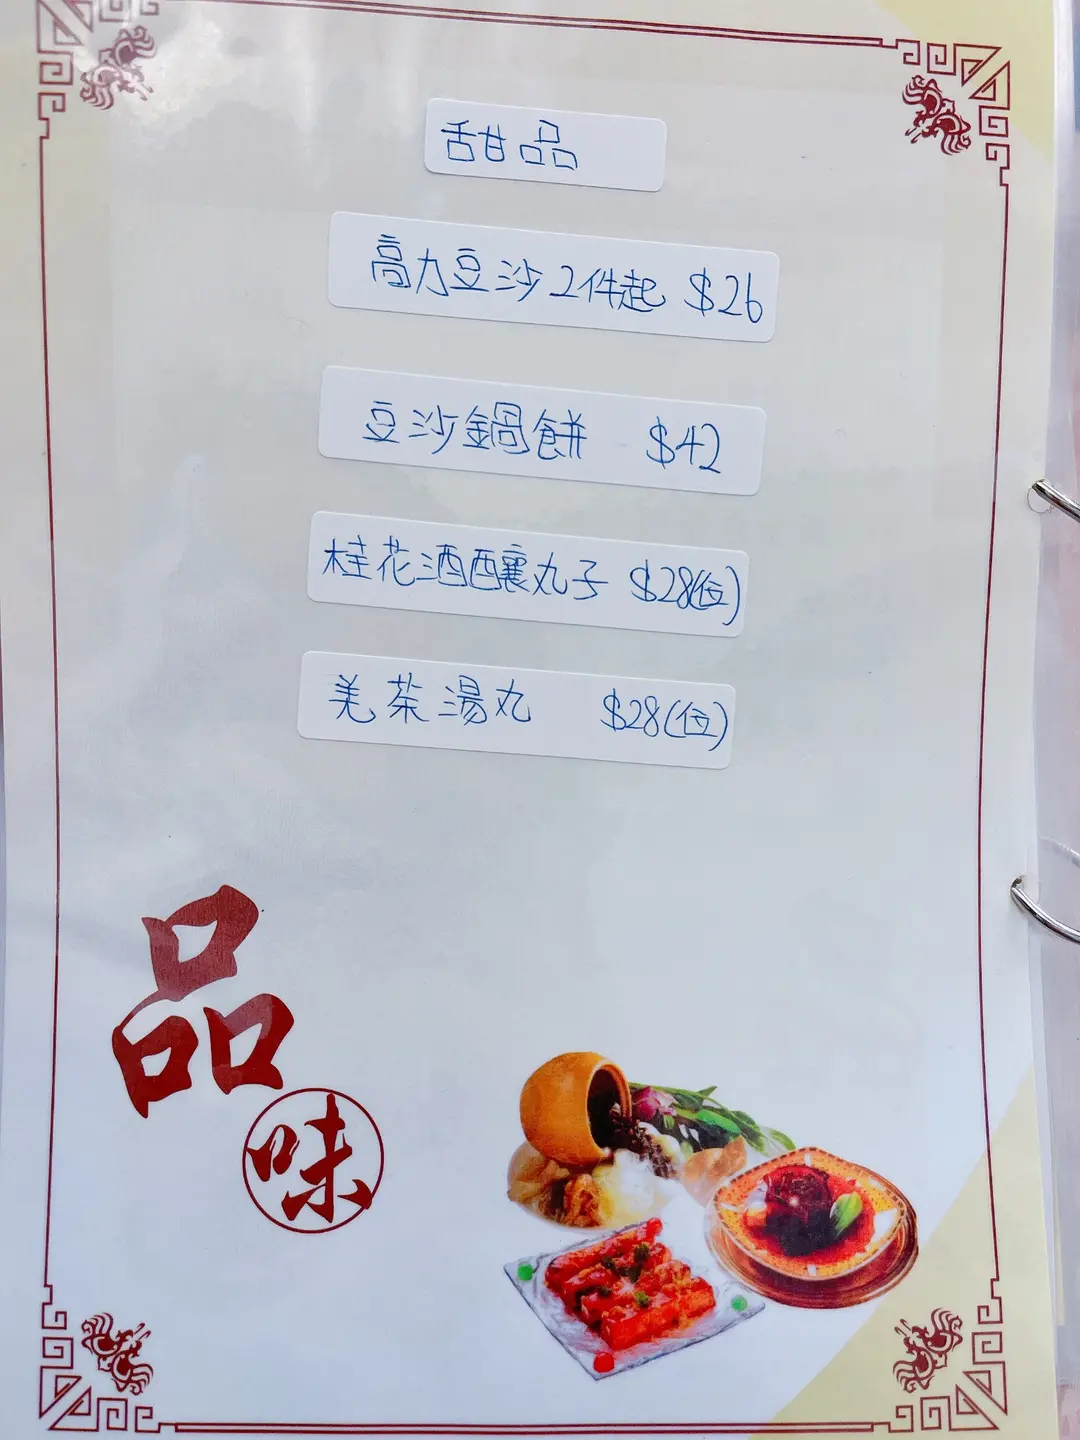 甜品
高力豆沙2件起 $26
豆沙鍋餅 $42
桂花酒釀丸子 $28(位)
羌茶湯丸 $28(位)
品
味